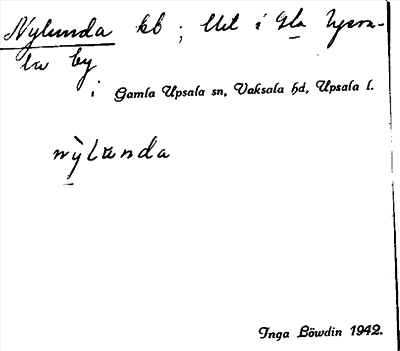 Nylunda kb ; Utt i Gla Upsa-
la by
i Gamla Upsala sn, Vaksala hd, Upsala l.
nỳlunda
Inga Löwdin 1942.